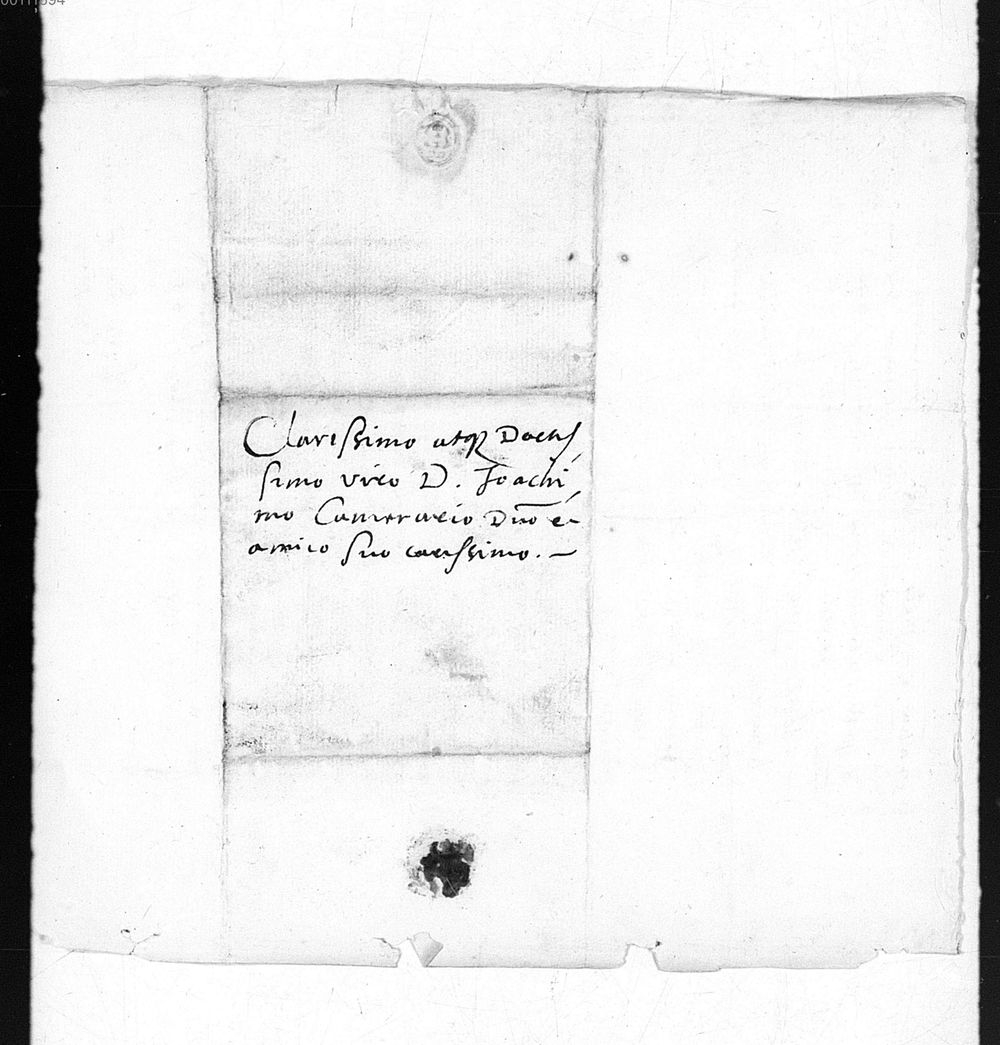 00111594
Clarissimo atq Doctis
simo viro D. Joachi,
mo Camerario Dno e
amico suo carissimo. —